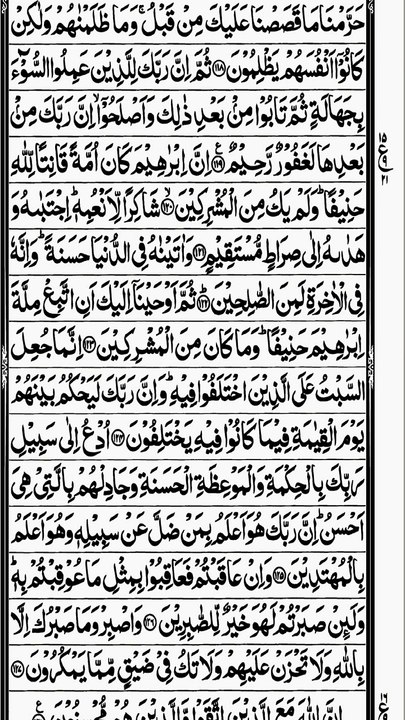 حَرَّمْنَا مَا قَصَصْنَا عَلَيْكَ مِنْ قَبْلُ ۚ وَمَا ظَلَمْنٰهُمْ وَلٰكِنْ
كَانُوْۤا اَنْفُسَهُمْ يَظْلِمُوْنَ ﴿۱۱۸﴾ ثُمَّ اِنَّ رَبَّكَ لِلَّذِيْنَ عَمِلُوا السُّوْٓءَ
بِجَهَالَةٍ ثُمَّ تَابُوْا مِنْۢ بَعْدِ ذٰلِكَ وَاَصْلَحُوْۤا ۙ اِنَّ رَبَّكَ مِنْۢ
بَعْدِهَا لَغَفُوْرٌ رَّحِيْمٌ ﴿۱۱۹﴾ ع اِنَّ اِبْرٰهِيْمَ كَانَ اُمَّةً قَانِتًا لِّلّٰهِ
حَنِيْفًا ؕ وَلَمْ يَكُ مِنَ الْمُشْرِكِيْنَ ﴿۱۲۰﴾ شَاكِرًا لِّاَنْعُمِهٖ ؕ اِجْتَبٰىهُ وَ
هَدٰىهُ اِلٰى صِرَاطٍ مُّسْتَقِيْمٍ ﴿۱۲۱﴾ وَاٰتَيْنٰهُ فِى الدُّنْيَا حَسَنَةً ؕ وَاِنَّهٗ
فِى الْاٰخِرَةِ لَمِنَ الصّٰلِحِيْنَ ﴿۱۲۲﴾ ثُمَّ اَوْحَيْنَاۤ اِلَيْكَ اَنِ اتَّبِعْ مِلَّةَ
اِبْرٰهِيْمَ حَنِيْفًا ؕ وَمَا كَانَ مِنَ الْمُشْرِكِيْنَ ﴿۱۲۳﴾ اِنَّمَا جُعِلَ
السَّبْتُ عَلَى الَّذِيْنَ اخْتَلَفُوْا فِيْهِ ؕ وَاِنَّ رَبَّكَ لَيَحْكُمُ بَيْنَهُمْ
يَوْمَ الْقِيٰمَةِ فِيْمَا كَانُوْا فِيْهِ يَخْتَلِفُوْنَ ﴿۱۲۴﴾ اُدْعُ اِلٰى سَبِيْلِ
رَبِّكَ بِالْحِكْمَةِ وَالْمَوْعِظَةِ الْحَسَنَةِ وَجَادِلْهُمْ بِالَّتِىْ هِىَ
اَحْسَنُ ؕ اِنَّ رَبَّكَ هُوَ اَعْلَمُ بِمَنْ ضَلَّ عَنْ سَبِيْلِهٖ وَهُوَ اَعْلَمُ
بِالْمُهْتَدِيْنَ ﴿۱۲۵﴾ وَاِنْ عَاقَبْتُمْ فَعَاقِبُوْا بِمِثْلِ مَا عُوْقِبْتُمْ بِهٖ ؕ
وَلَئِنْ صَبَرْتُمْ لَهُوَ خَيْرٌ لِّلصّٰبِرِيْنَ ﴿۱۲۶﴾ وَاصْبِرْ وَمَا صَبْرُكَ اِلَّا
بِاللّٰهِ وَلَا تَحْزَنْ عَلَيْهِمْ وَلَا تَكُ فِىْ ضَيْقٍ مِّمَّا يَمْكُرُوْنَ ﴿۱۲۷﴾
اِنَّ اللّٰهَ مَعَ الَّذِيْنَ اتَّقَوْا وَّالَّذِيْنَ هُمْ مُّحْسِنُوْنَ
۱۵
ع
۹
۲۱
۱۶
ع